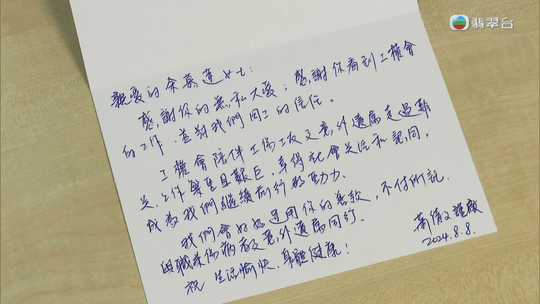 翡翠台
親愛的余慕蓮女士:
感謝你的無私大愛;感謝你看到工權會
的工作,並對我們同工的信任。
工權會陪伴工傷工友及意外遺屬走過艱
苦,工作繁重且艱巨,幸得社會关注和認同,
成為我們繼續前行的動力。
我們會好好運用你的善款,不付所託,
與職業傷病者及意外遺屬同行。
祝 生活愉快,身體健康!
蕭倩文 謹啟
2024.8.8.